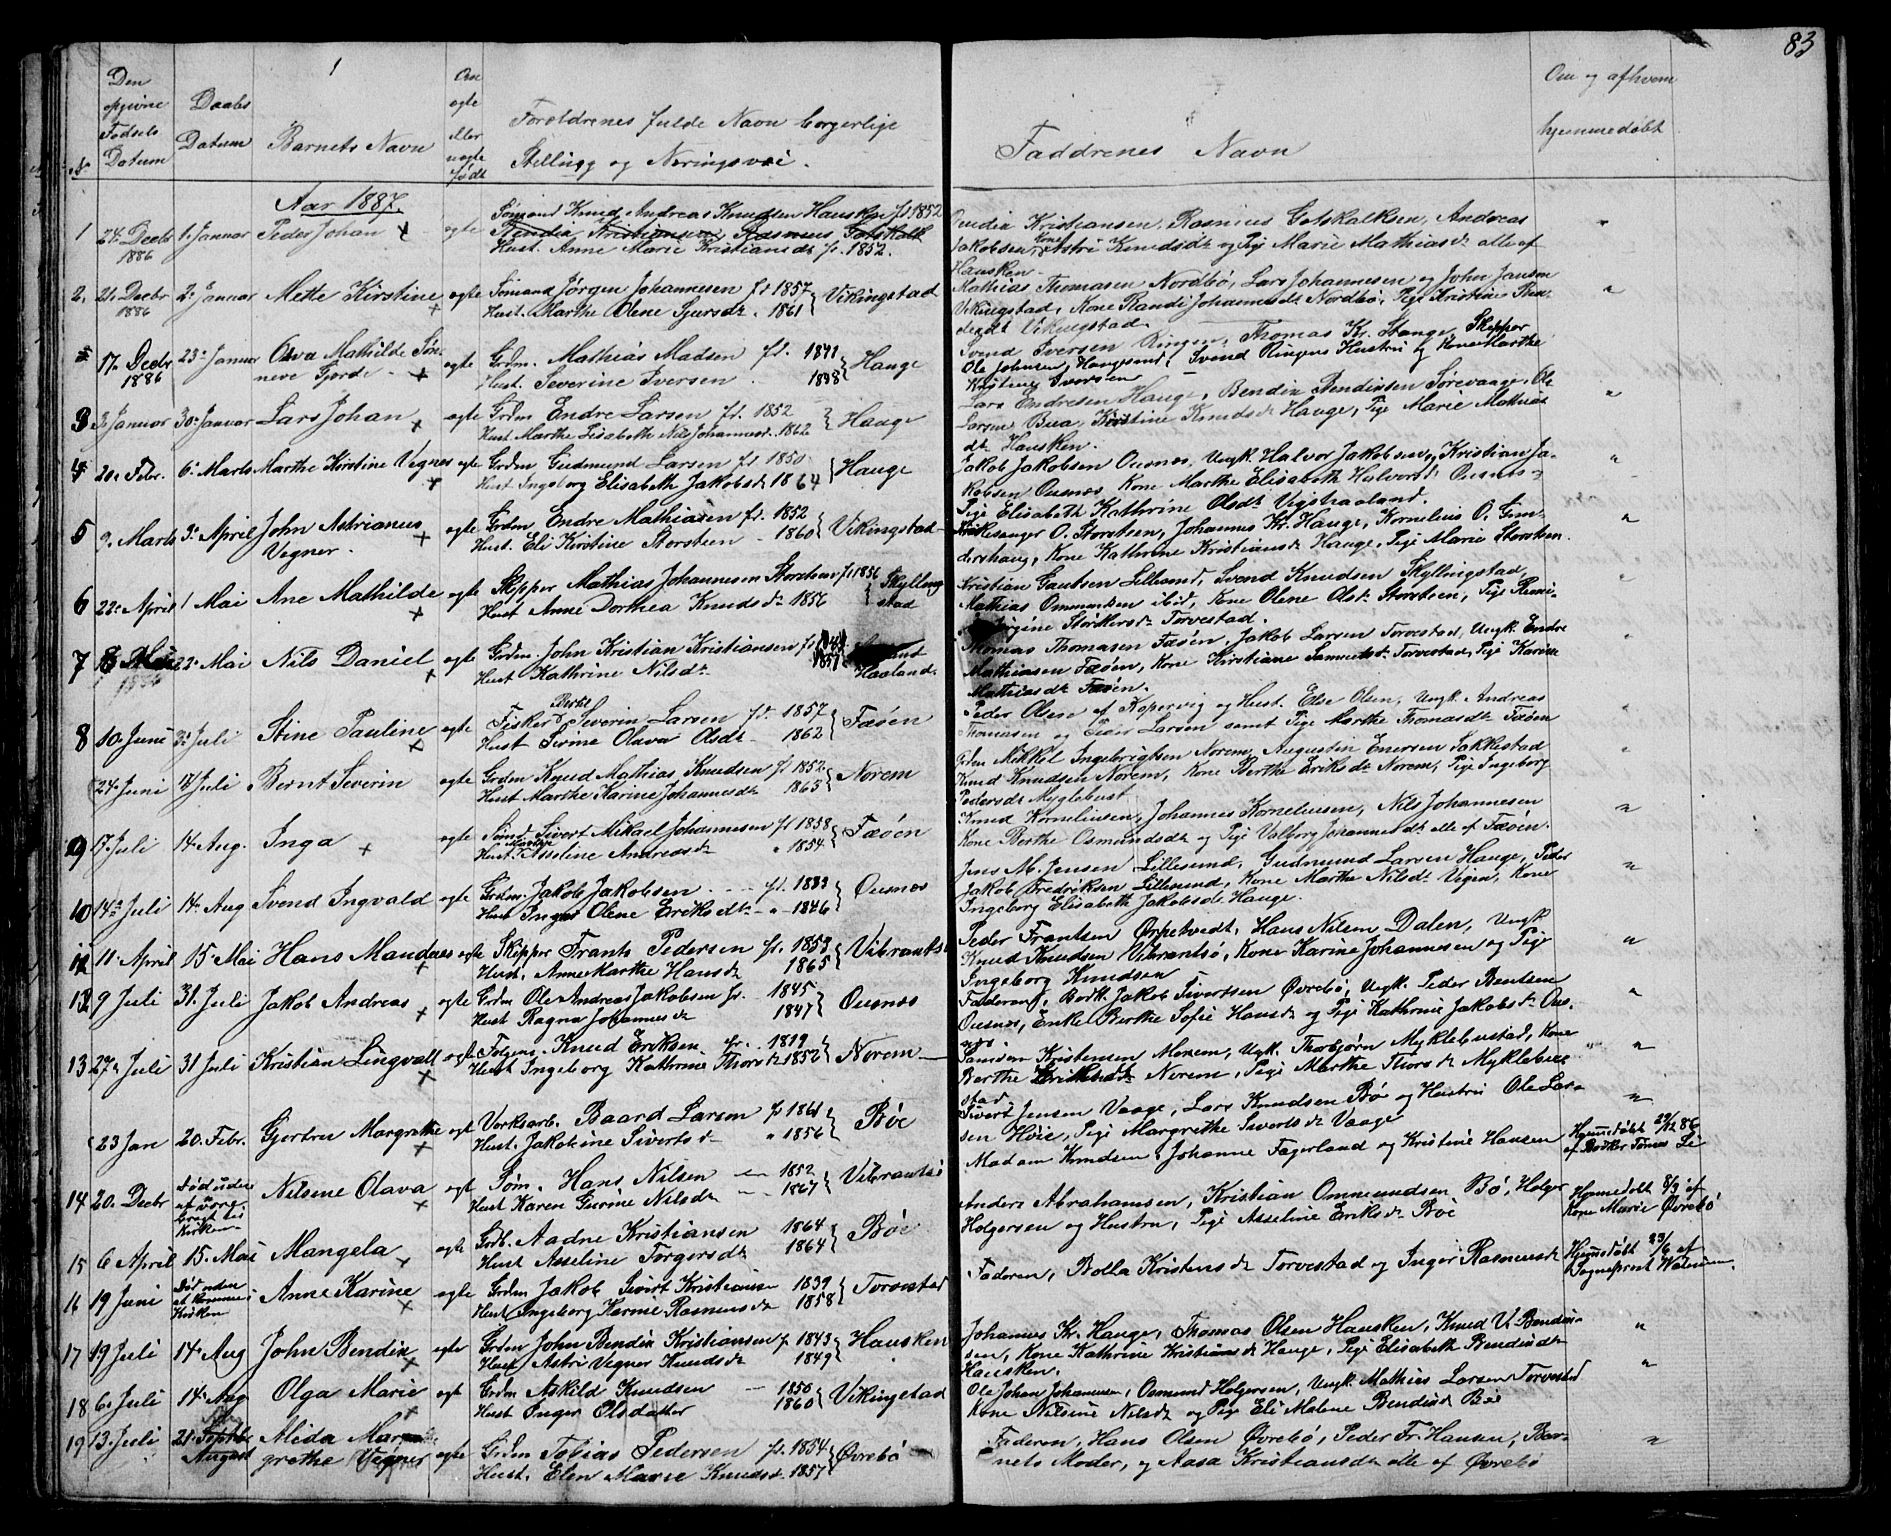 83
Den opgivne Fødsels Datum
Daabs Datum
Barnets Navn
Om ægte eller uægte født
Forældrenes fulde Navn borgerlige
Stilling og Næringsvei.
Faddrenes Navn
Om og af hvem
hjemmedøbt
Aar 1887.
1 24 Decbr 1886 1. Januar Peder Johan ægte Sømand Knud Andreas Knudsen Hausken f. 1852
Hust. Anne Marie Kristiansdt f. 1852.
Kristiansen, Rasmus Gotskalksen, Andreas
Jakobsen, Kone Astri Knudsdt og Pige Marie Mathiasdt alle af
Hausken.
2. 21. Decbr 1886 2. Januar Mette Kirstine ægte Sømand Jørgen Johannesen fd 1857 Vikingstad
Hust. Marthe Olene Sjursdt. 1861
Mathias Thomasen Nordbø, Lars Johannesen og John Jansen
Vikingstad, Kone Randi Johannesdt Nordbø, Pige Kristine
Vikingstad.
17. Decbr 1886 23. Januar Mathilde ægte Grdm. Mathias Madsen fd. Hauge
Hust. Severine Iversen. 1838
Svend Iversen Ringen, Thomas Kr. Stange, Skipper
Ole Johnsen, Haugesund, Svend Ringens Hustru og Kone Marthe
Kristene Iversen
3 3 Januar 30. Januar Lars Johan ægte Grdm Endre Larsen fd. 1852 Hauge
Hust. Marthe Lisabeth Nils Johannesdt. 1862
Lars Endresen Hauge, Bendix Bendixsen Sørevaage, Ole
Larsen Bua, Kirstine Knudsdt Hauge, Pige Marie Mathias
dt. Hausken.
4 20. Febr. 6. Marts Marthe Kirstine Vegner ægte Grdm Gudmund Larsen fd 1850 Hauge
Hust Ingeborg Elisabeth Jakobsdt 1864
Jakob Jakobsen Ousnes, Ungk. Halvor Jakobsen, Kristian Ja-
kobsen Ousnes, Kone Marthe Elisabeth Halvorsdt Ousnes
Pige Elisabeth Kathrine Olsdt Vigstraaland.
5 9. Marts 3. April John Adrianus Vegner. ægte Grdm Endre Mathiasen fd. 1852 Vikingstad
Hust. Eli Kirstine Storsteen - 1860
O. Storsteen, Johannes Kr. Hauge, Kornelius O. Gun-
dershaug, Kone Kathrine Kristiansdt Hauge, Pige Marie Storsteen.
6 22. April 1 Mai Ane Mathilde ægte Skipper Mathias Johannesen Storsteen fd 1856 Skyllingstad
Hust Anne Dorthea Knudsdt 1856
Kristian Gautsen Lillesund, Svend Knudsen Skyllingstad,
Mathias Ommundsen ibid, Kone Olene Olsdt Storsteen, Pige
Størkersdt Torvestad.
7 22. Mai Nils Daniel ægte Grdm. John Kristian Kristiansen Haaland.
Hust Kathrine Nilsdt 1851
Thomas Thomasen Fæøen, Jakob Larsen Torvestad, Ungk. Endre
Mathiasen Fæøen, Kone Kirstiane Samuelsdt Torvestad, Pige Karine
Mathiasdt Fæøen.
8 10. Juni 3. Juli Stine Pauline ægte Fisker Bertel Severin Larsen fd. 1857 Fæøen
Hust Sirine Olava Olsdt - 1862
Peder Olsen af Kopervig og Hust. Else Olsen, Ungk. Andreas
og Peder Larsen samt Pige Marthe Thomasdt Fæøen
24. Juni 17 Juli Bernt Severin ægte Grdm Knud Mathias Knudsen fd 1852 Norem
Hust Marthe Karine Johannesdt 1865
Mikkel Ingebrigtsen Norem, Augustin Enersen Sakkestad
Knud Knudsen Norem, Kone Berthe Eriksdt Norem, Pige Ingeborg
Pedersdt Myglebust
9 17 Juli 14. Aug. Inga ægte Sømd Sivert Mikael Johannesen fd 1858 Fæøen
Hust. Marthe Asseline Andreasdt 1854
Knud Korneliusen, Johannes Korneliusen, Nils Johannesen
Kone Berthe Osmundsdt og Pige Valborg Johannesdt alle af Fæøen.
10 14. Juli 14. Aug Svend Ingvald ægte Grdm. Jakob Jakobsen fd. 1839 Ousnes
Hust Inger Olene Eriksdt - 1846
Jens M. Jensen Lillesund, Gudmund Larsen Hauge, Peder
Jakob Fredriksen Lillesund, Kone Marthe Nilsdt Vigen, Kone
Ingeborg Elisabeth Jakobsdt Hauge.
11 11. April 15. Mai Hans Mandeus ægte Skipper Frants Pedersen fd. 1859 Vibrantsø
Hust. Anne Marthe Hansdt 1865
Peder Frantsen Ørpetvedt, Hans Nilsen Dalen, Ungk
Knud Knudsen Vibrantsø, Kone Karine Johannesen og Pige
Ingeborg Knudsen
12 9 Juli 31. Juli Jakob Andreas ægte Grdm Ole Andreas Jakobsen f. 1845 Ousnes
Hust Ragna Johannesdt 1847
Faderen, Bødk. Jakob Sivertsen Øvrebø, Ungk. Peder Bentsen
Ousnes, Enke Berthe Sofie Hansdt og Pige Kathrine Jakobsdt Ous-
nes.
13 27. Juli 31 Juli Kristian Lingvall ægte Knud Eriksen fd. 1819 Norem
Hust Ingeborg Kathrine Thorsdt 1852
Samson Kristensen Norem, Ungk. Thorbjørn Myklebustad, Kone
Berthe Eriksdt Norem, Pige Marthe Thorsdt Myklebu-
stad
23 Jan 20. Febr. Gjertru Margrethe ægt Verksarb. Baard Larsen fd 1861 Bøe
Hust. Jakobine Sivertsdt 1856
Sivert Jensen Vaage, Lars Knudsen Bø og Hustru Ole Lar-
sen Høie, Pige Margrethe Sivertsdt Vaage
14 20. Decbr Nilsine Olava ægt Søm. Hans Nilsen 1852 Vibrantsø
Hust Karen Gurine Nilsdt 1867
Madam Knudsen, Johanne Fagerland og Kristine Hansen
Hjemmedøbt 23/12 86
af Bødker Tønnes Li
15 6 April 15. Mai Mangela ægte Grdb. Aadne Kristiansen 1864 Bøe
Hust Asseline Torgersdt 1864
Anders Abrahamsen, Kristian Ommundsen Bø, Holger
Holgersen og Hustru, Pige Asseline Eriksdt Bøe
Hjemmedøbt 8/9 af
Kone Marie Øvrebø
16 19 Juni Død inden at komme i Kirken Anne Karine ægte Grdm Jakob Sivert Kristiansen 1839 Torvestad
Hust Ingeborg Karine Rasmusdt 1858
Faderen, Bolla Kristensdt Torvestad og Inger Rasmusdt
Hjemmedøbt 23/6 af
Sogneprest Walnum.
17 19 Juli 14. Aug John Bendix ægte Grdm John Bendix Kristiansen f 1843 Hausken
Hust Astri Vegner Knudsdt 1849
Johannes Kr. Hauge, Thomas Olsen Hausken, Knud V. Bendix-
sen, Kone Kathrine Kristiansdt Hauge, Pige Elisabeth Bendixdt
Hausken.
18 6. Juli 14. Aug Olga Marie ægt Grdm Askild Knudsen 1850 Vikingstad
Hust Inger Olsdatter 1860
Ole Johan Johannesen, Osmund Holgersen, Ungk. Mathias Larsen Torvestad
Kone Nilsine Nilsdt og Pige Eli Malene Bendixdt Bøe
19 13. Juli 21. August Alida Margrethe Vegner ægte Grdm Tobias Pedersen fd. 1854 Øvrebø
Hust. Elen Marie Knudsdt. 1857
Faderen, Hans Olsen Øvrebø, Peder Fr. Hansen, Bar-
nets Moder, og Aasa Kristiansdt alle af Øvrebø